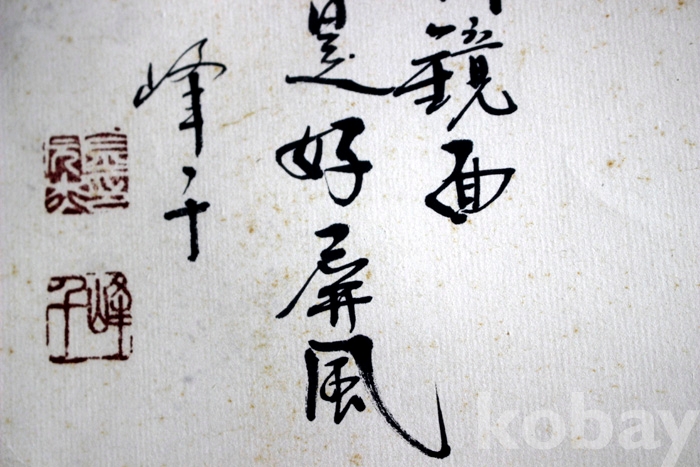 鏡面
是好屏風
峰千
峰千
kobay